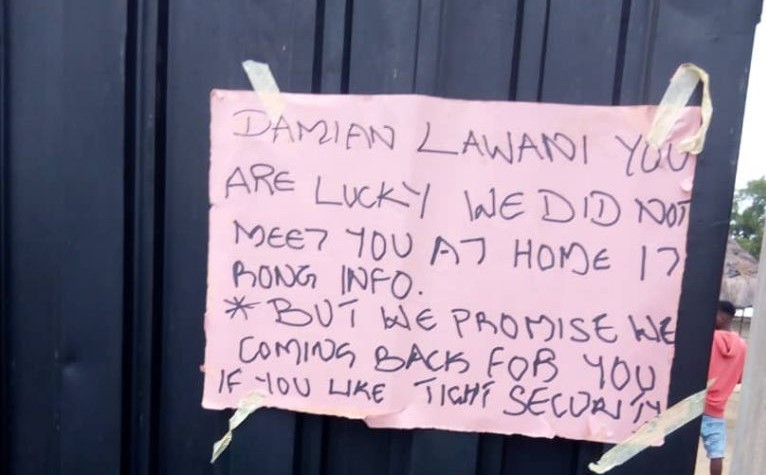 DAMIAN LAWANI YOU
ARE LUCKY WE DID NOT
MEET YOU AT HOME IT
RONG INFO.
* BUT WE PROMISE WE
COMING BACK FOR YOU
IF YOU LIKE TIGHT SECURITY